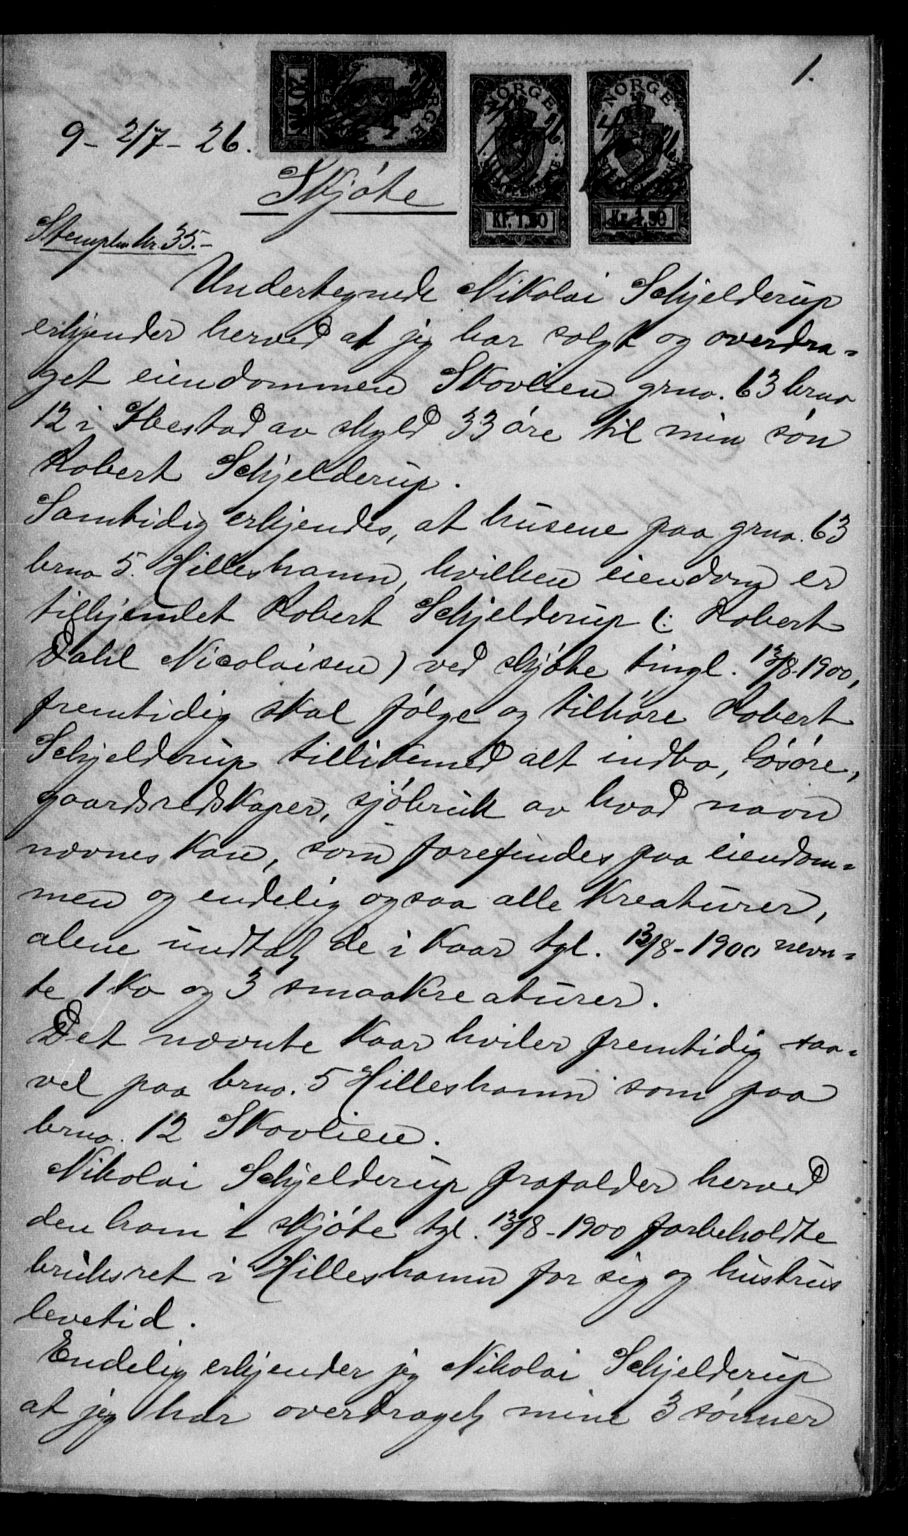 1.
NORGE
20
NORGE
KR. 1.50
NORGE
KR. 1.50
9 - 2/7 - 26.
Skjøte
Stemples kr. 35.-
Undertegnede Nikolai Schjelderup
erkjender herved at jeg har solgt og overdra=
get eiendommen Skovlien grno. 63 brno
12 i Ibestad av skyld 33 øre til min søn
Robert Schjelderup.
Samtidig erkjendes, at husene paa grno. 63
brno 5. Hilleshamn, hvilken eiendom er
tilhjemlet Robert Schjelderup (: Robert
Dahl Nicolaisen) ved skjøte tingl. 13/8-1900,
fremtidig skal følge og tilhøre Robert
Schjelderup tillikemed alt indbo, løsøre,
gaardsredskaper, sjøbruk av hvad navn
nævnes kan, som forefindes paa eiendom=
men og endelig ogsaa alle kreaturer,
alene undtat de i kaar tgl. 13/8-1900 nevn=
te 1 ko og 3 smaakreaturer.
Det nævnte kaar hviler fremtidig saa=
vel paa brno. 5 Hilleshamn som paa
brno. 12 Skovlien.
Nikolai Schjelderup frafalder herved
den ham i skjøte tgl. 13/8-1900 forbeholdte
bruksret i Hilleshamn for sig og hustrus
levetid.
Endelig erkjender jeg Nikolai Schjelderup
at jeg har overdraget mine 3 sønner